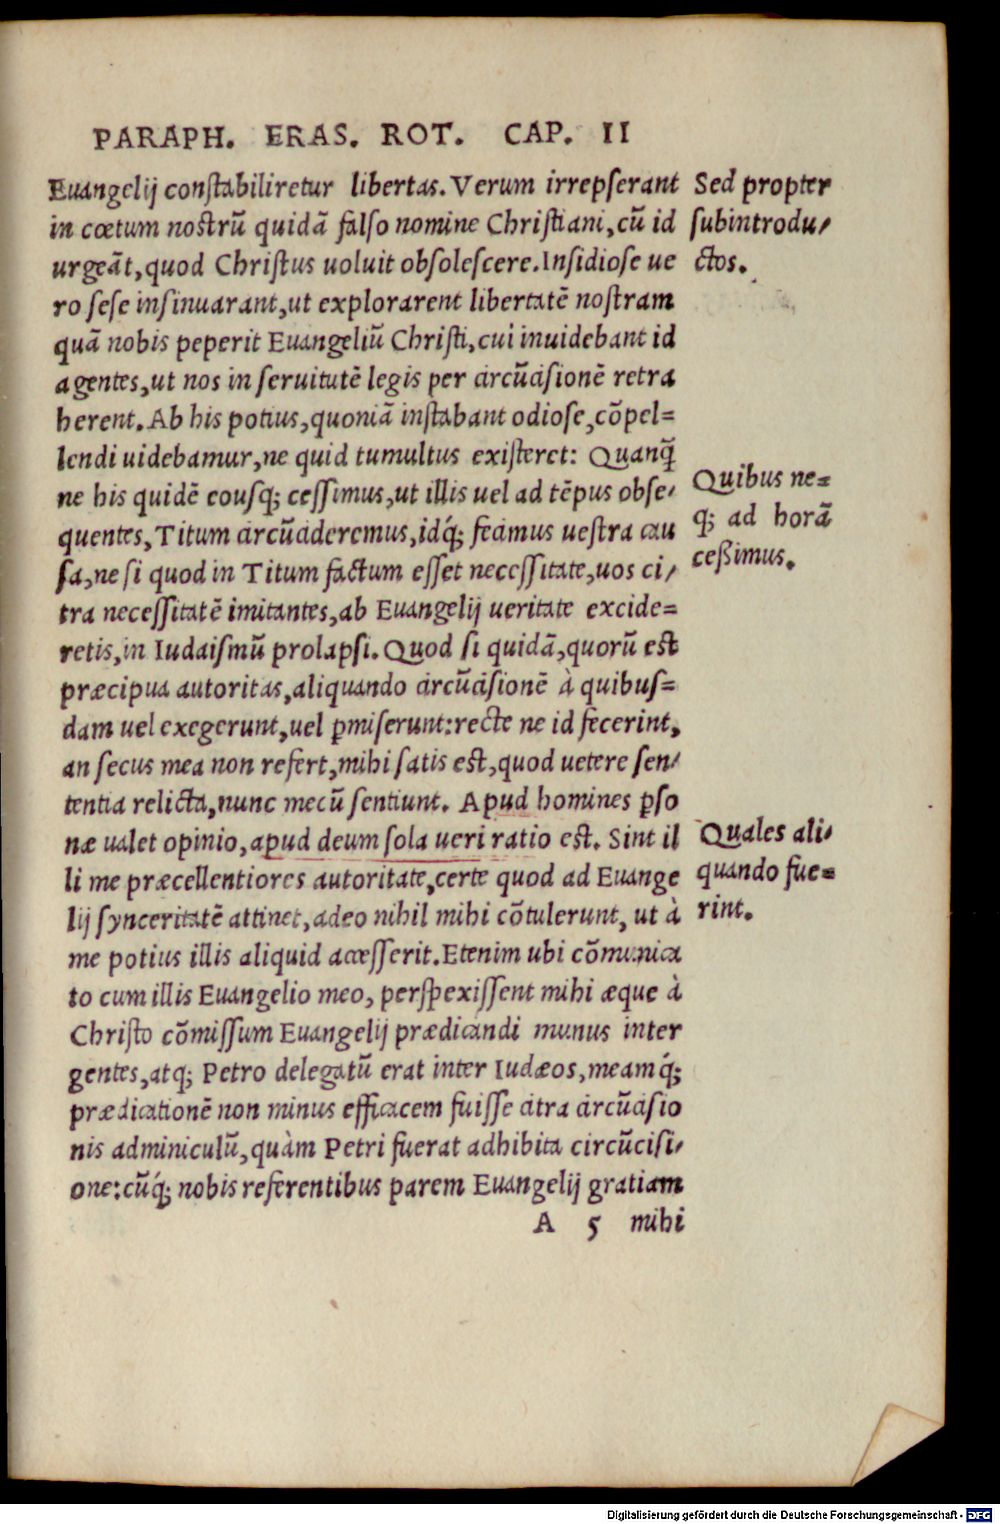 PARAPH. ERAS. ROT. CAP. II
Euangelij conſtabiliretur libertas. Verum irrepſerant
in cœtum noſtrũ quidã falſo nomine Chriſtiani, cũ id
urgeãt, quod Chriſtus uoluit obſoleſcere. Inſidioſe ue
ro ſeſe inſinuarant, ut explorarent libertatẽ noſtram
quã nobis peperit Euangeliũ Chriſti, cui inuidebant id
agentes, ut nos in ſeruitutẽ legis per circũciſionẽ retra
herent. Ab his potius, quoniã inſtabant odioſe, cõpel=
lendi uidebamur, ne quid tumultus exiſteret: Quanq̃
ne his quidẽ eouſq; ceſſimus, ut illis uel ad tẽpus obſe/
quentes, Titum circũcideremus, idq́; feцimus ueſtra cau
ſa, ne ſi quod in Titum factum eſſet neceſſitate, uos ci/
tra neceſſitatẽ imitantes, ab Euangelij ueritate excide=
retis, in Iudaiſmũ prolapſi. Quod ſi quidã, quorũ eſt
præcipua autoritas, aliquando circũciſionẽ à quibuſ=
dam uel exegerunt, uel ꝑmiſerunt: recte ne id fecerint,
an ſecus mea non refert, mihi ſatis eſt, quod uetere ſen/
tentia relicta, nunc mecũ ſentiunt. Apud homines ꝑſo
næ ualet opinio, apud deum ſola ueri ratio eſt. Sint il
li me præcellentiores autoritate, certe quod ad Euange
lij ſynceritatẽ attinet, adeo nihil mihi cõtulerunt, ut à
me potius illis aliquid acceſſerit. Etenim ubi cõmunica
to cum illis Euangelio meo, perſpexiſſent mihi æque à
Chriſto cõmiſſum Euangelij prædicandi munus inter
gentes, atq; Petro delegatũ erat inter Iudæos, meamq́;
prædicationẽ non minus efficacem fuiſſe citra circũciſio
nis adminiculũ, quàm Petri fuerat adhibita circũciſi/
one: cũq́; nobis referentibus parem Euangelij gratiam
A 5 mihi
Sed propter
ſubintrodu/
ctos.
Quibus ne=
q; ad horã
ceßimus.
Quales ali/
quando fue=
rint.
Digitalisierung gefördert durch die Deutsche Forschungsgemeinschaft - DFG